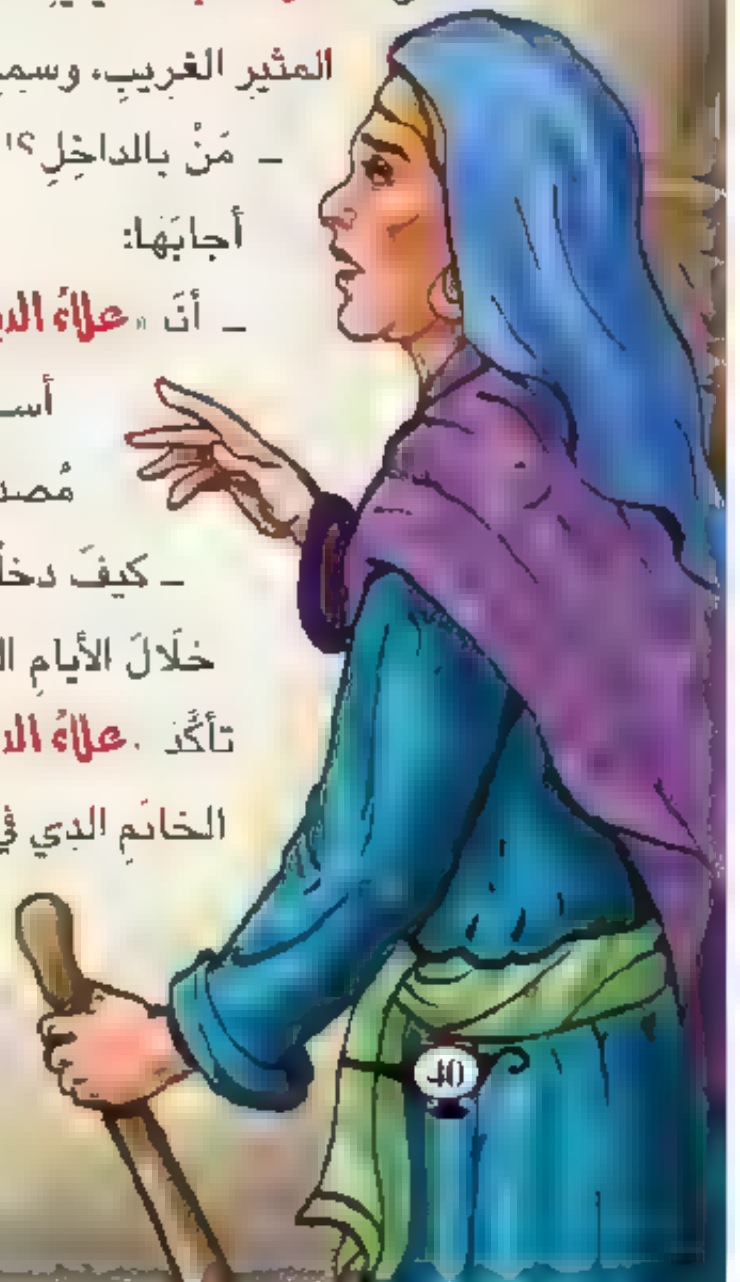 المثيرِ الغريبِ، وسمِعَ
– مَنْ بالداخِلِ؟!
أجابَهَا:
– أنَا «علاءُ الدين
أسـ
مُصد
– كيفَ دخلـ
خلَالَ الأيامِ الـ
تأكَّدَ «علاءُ الد
الخاتَمِ الذِي فِي
40